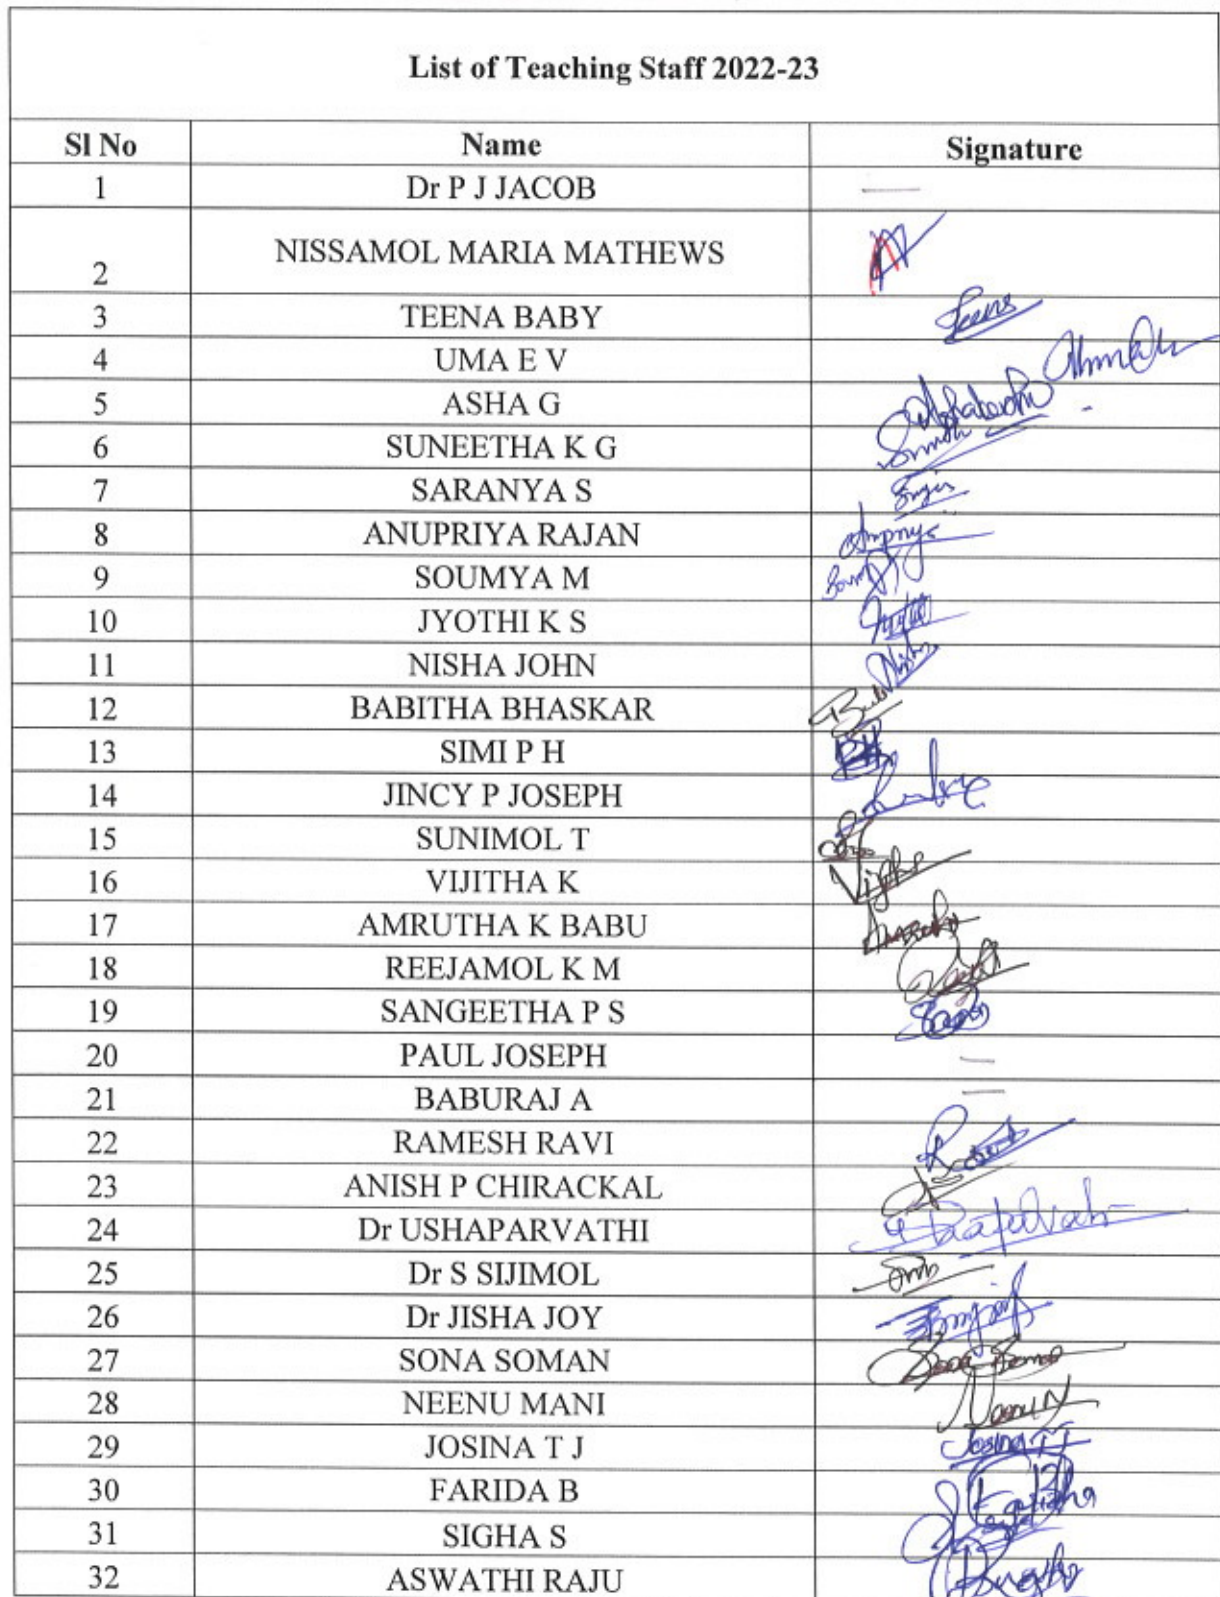 List of Teaching Staff 2022-23
Sl No Name Signature
1 Dr P J JACOB —
2 NISSAMOL MARIA MATHEWS
3 TEENA BABY
4 UMA E V
5 ASHA G
6 SUNEETHA K G
7 SARANYA S
8 ANUPRIYA RAJAN
9 SOUMYA M
10 JYOTHI K S
11 NISHA JOHN
12 BABITHA BHASKAR
13 SIMI P H
14 JINCY P JOSEPH
15 SUNIMOL T
16 VIJITHA K
17 AMRUTHA K BABU
18 REEJAMOL K M
19 SANGEETHA P S
20 PAUL JOSEPH —
21 BABURAJ A —
22 RAMESH RAVI
23 ANISH P CHIRACKAL
24 Dr USHAPARVATHI
25 Dr S SIJIMOL
26 Dr JISHA JOY
27 SONA SOMAN
28 NEENU MANI
29 JOSINA T J Josina T J
30 FARIDA B
31 SIGHA S
32 ASWATHI RAJU